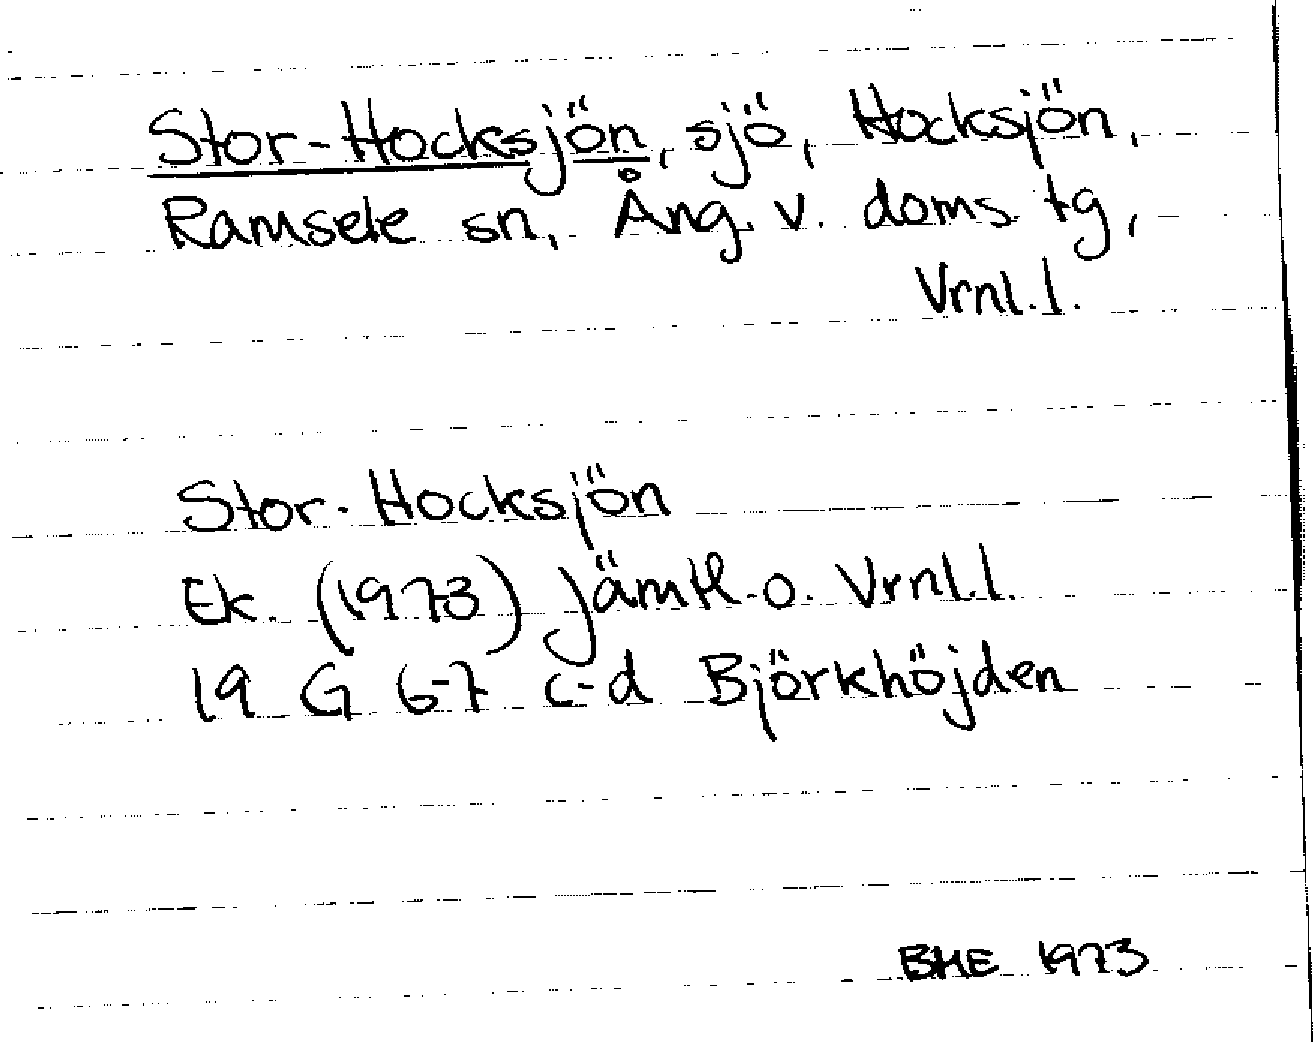 Stor-Hocksjön, sjö, Hocksjön,
Ramsele sn, Ång. v. doms. tg,
Vrnl. l.
Stor-Hocksjön
Ek. (1973) Jämtl. o. Vrnl. l.
19 G 6-7 c-d Björkhöjden
BHE 1973